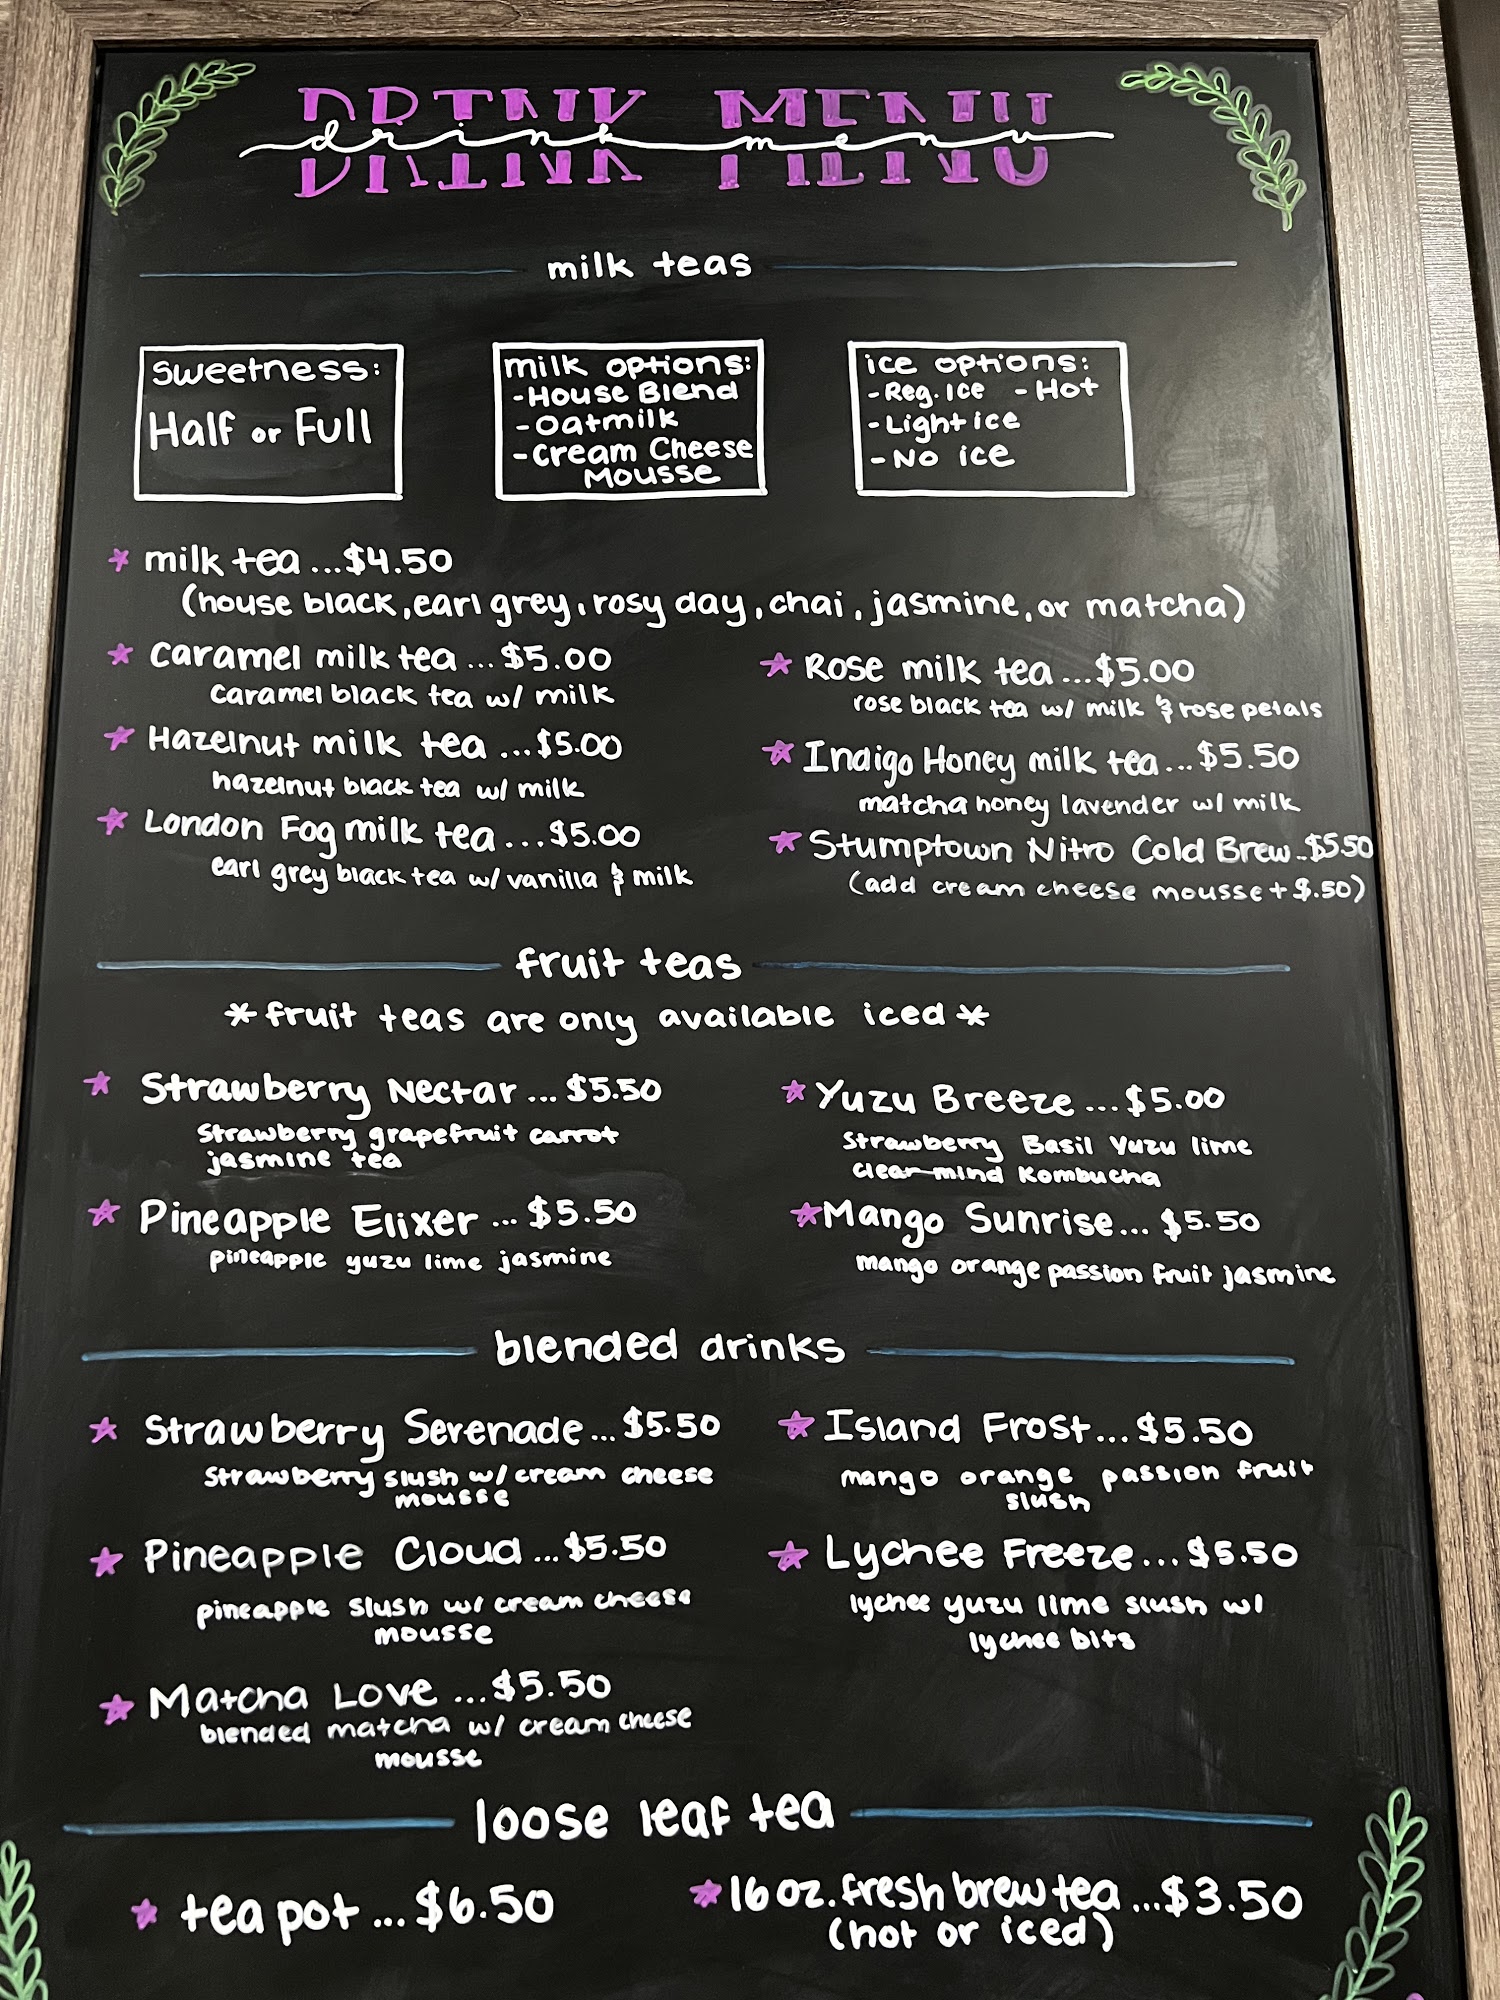 DRINK MENU
drink menu
milk teas
Sweetness:
Half or Full
milk options:
-House Blend
-Oatmilk
-Cream Cheese
Mousse
ice options:
-Reg. ice -Hot
-Light ice
-No ice
milk tea...$4.50
(house black, earl grey, rosy day, chai, jasmine, or matcha)
Caramel milk tea...$5.00
caramel black tea w/ milk
Hazelnut milk tea...$5.00
hazelnut black tea w/ milk
London Fog milk tea...$5.00
earl grey black tea w/ vanilla & milk
Rose milk tea...$5.00
rose black tea w/ milk & rose petals
Indigo Honey milk tea...$5.50
matcha honey lavender w/ milk
Stumptown Nitro Cold Brew..$5.50
(add cream cheese mousse + $.50)
fruit teas
*fruit teas are only available iced*
Strawberry Nectar...$5.50
Strawberry grapefruit carrot
jasmine tea
Pineapple Elixer...$5.50
pineapple yuzu lime jasmine
Yuzu Breeze...$5.00
Strawberry Basil Yuzu lime
clear mind Kombucha
Mango Sunrise...$5.50
mango orange passion fruit jasmine
blended drinks
Strawberry Serenade...$5.50
Strawberry slush w/ cream cheese
mousse
Pineapple Cloud...$5.50
pineapple slush w/ cream cheese
mousse
Matcha Love...$5.50
blended matcha w/ cream cheese
mousse
Island Frost...$5.50
mango orange passion fruit
slush
Lychee Freeze...$5.50
lychee yuzu lime slush w/
lychee bits
loose leaf tea
tea pot...$6.50
16 oz. fresh brew tea...$3.50
(hot or iced)